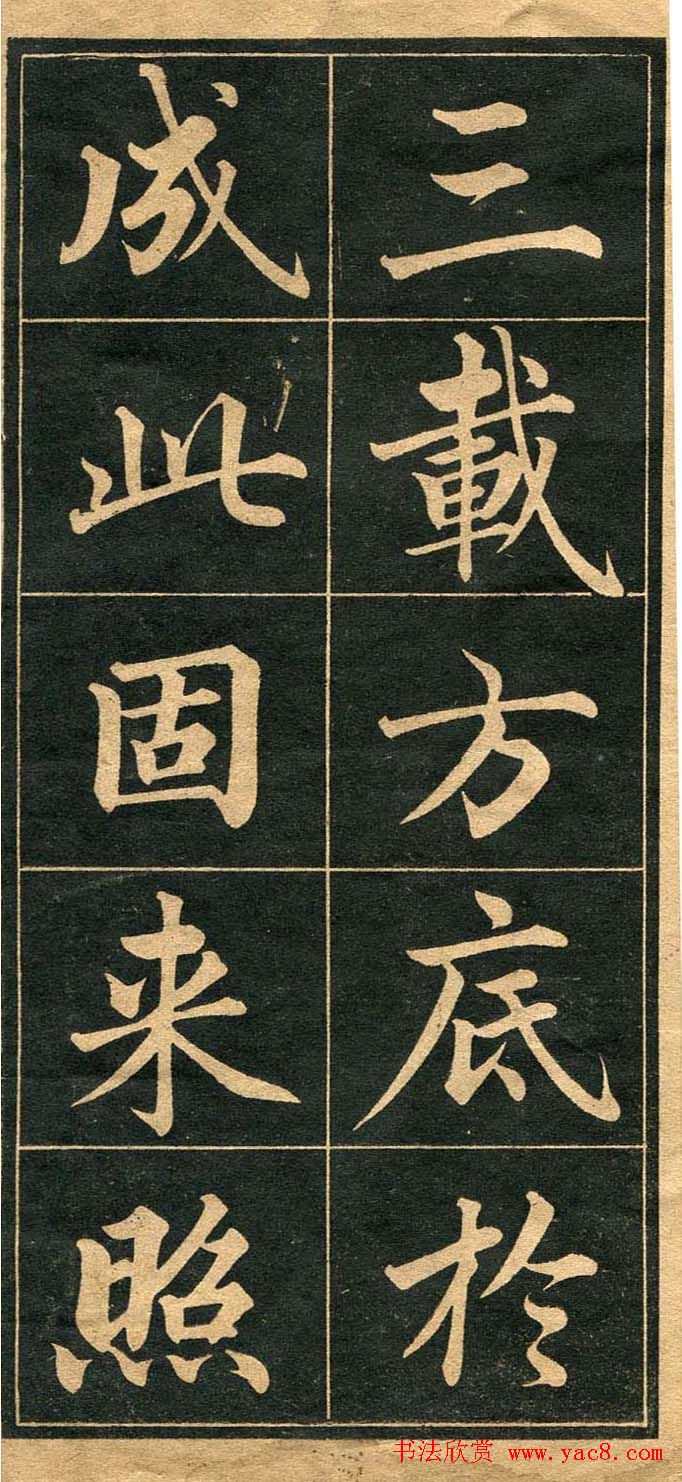 三載方底於
成此固来照
书法欣赏 www.yac8.com